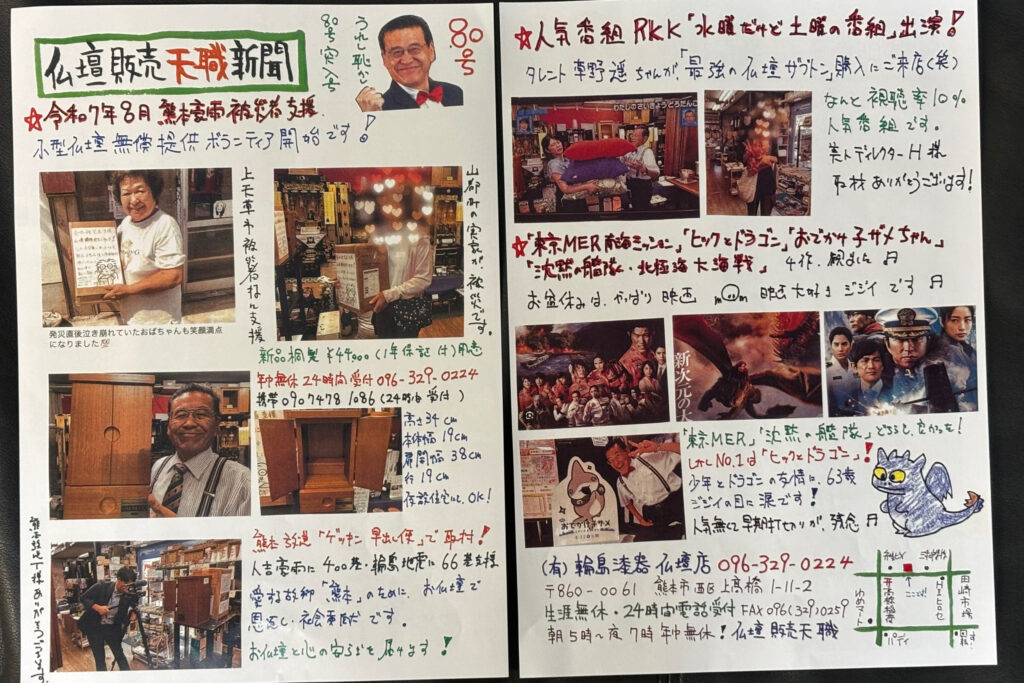 仏壇販売天職新聞
うれし恥かし
80号突入号
80号
☆令和7年8月 熊本豪雨被災者支援
小型仏壇無償提供ボランティア開始です!
上天草市被災者様に支援
山都町の実家が、被災です。
発災直後泣き崩れていたおばちゃんも笑顔満点
になりました💯
新品桐製 ¥44,900(1年保証付)用意
年中無休24時間受付 096-329-0224
携帯 090 7478 1086(24時間受付)
高さ34cm
本体幅19cm
扉開幅38cm
行19cm
仮設住宅にも、OK!
熊本放送「ゲツキン早出し便」で取材!
人吉豪雨に400基・輪島地震に66基支援
愛する故郷「熊本」のために、お仏壇で
恩返し・社会貢献です。
お仏壇と心の安らぎを届けます!
様ありがとうございます。
☆人気番組RKK「水曜だけど土曜の番組」出演!
タレント草野遥ちゃんが、「最強の仏壇ザブトン」購入にご来店(笑)
わたしのさいきょうどろだんご
なんと視聴率10%
人気番組です。
美人ディレクターH様
取材ありがとうございます!
☆「東京MER南海ミッション」「ヒックとドラゴン」「おでかけ子ザメちゃん」
「沈黙の艦隊・北極海大海戦」 4作、観ました♬
お盆休みは、やっぱり映画 映画大好きジジイです♬
新次元の
おでかけ子ザメ
「東京MER」「沈黙の艦隊」どちらも良かった!
しかしNo.1は「ヒックとドラゴン」!
少年とドラゴンの友情に、63歳
ジジイの目に涙です!
人気無くて早期打ち切りが、残念♬
(有)輪島漆器仏壇店 096-329-0224
〒860-0061 熊本市西区上高橋1-11-2
生涯無休・24時間電話受付 FAX096(329)0259
朝5時〜夜7時年中無休!仏壇販売天職
ここ!
ゆめマート
高橋稲荷
ピエトロセ
田崎市場
パディ